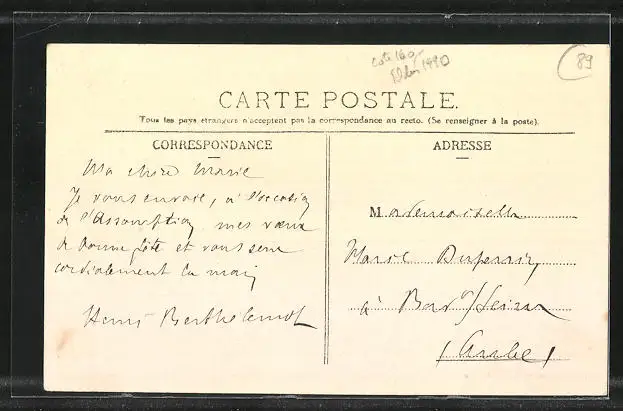 89
CARTE POSTALE.
Tous les pays étrangers n'acceptent pas la correspondance au recto. (Se renseigner à la poste).
CORRESPONDANCE
ADRESSE
Ma chère Marie
Je vous envoie, à l'occasion
de l'Assomption mes vœux
de bonne fête et vous serre
cordialement la main
Henri Berthelemot
Mademoiselle
Marie
à Bar s/ Seine
(Aube)